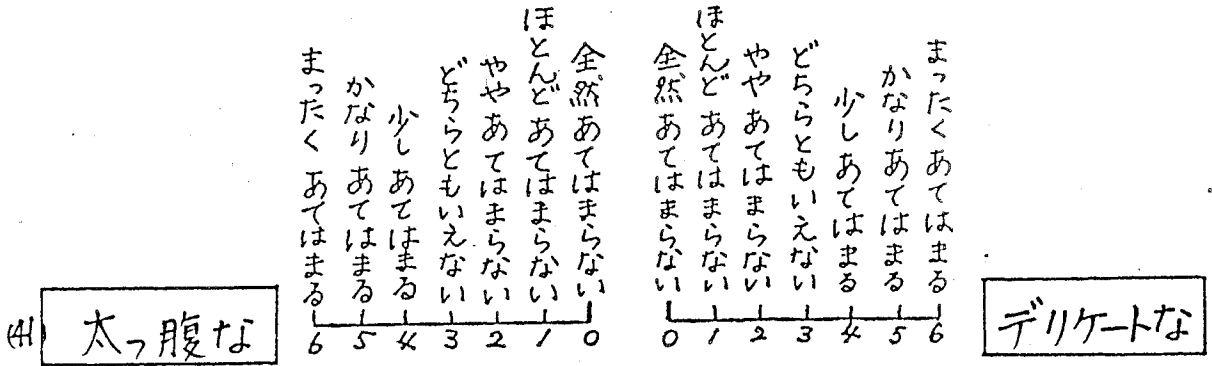 まったくあてはまる
かなりあてはまる
少しあてはまる
どちらともいえない
ややあてはまらない
ほとんどあてはまらない
全然あてはまらない
全然あてはまらない
ほとんどあてはまらない
ややあてはまらない
どちらともいえない
少しあてはまる
かなりあてはまる
まったくあてはまる
(41) 太っ腹な 6 5 4 3 2 1 0 0 1 2 3 4 5 6 デリケートな